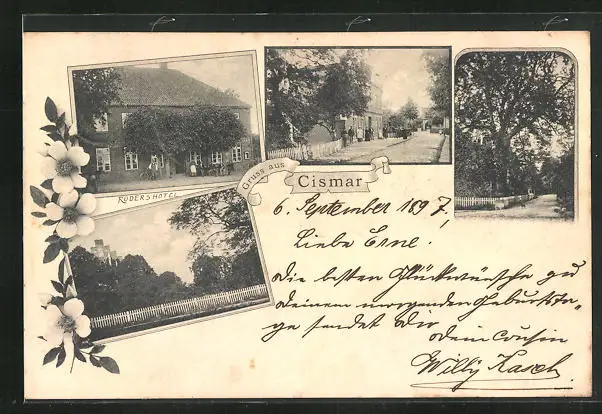 RÖDERS HOTEL
Gruss aus
Cismar
6. September 1897,
Liebe Erne!
Die besten Glückwünsche zu
Deinem morgenden Geburtsta-
ge sendet Dir
Dein Cousin
Willy Kasch.